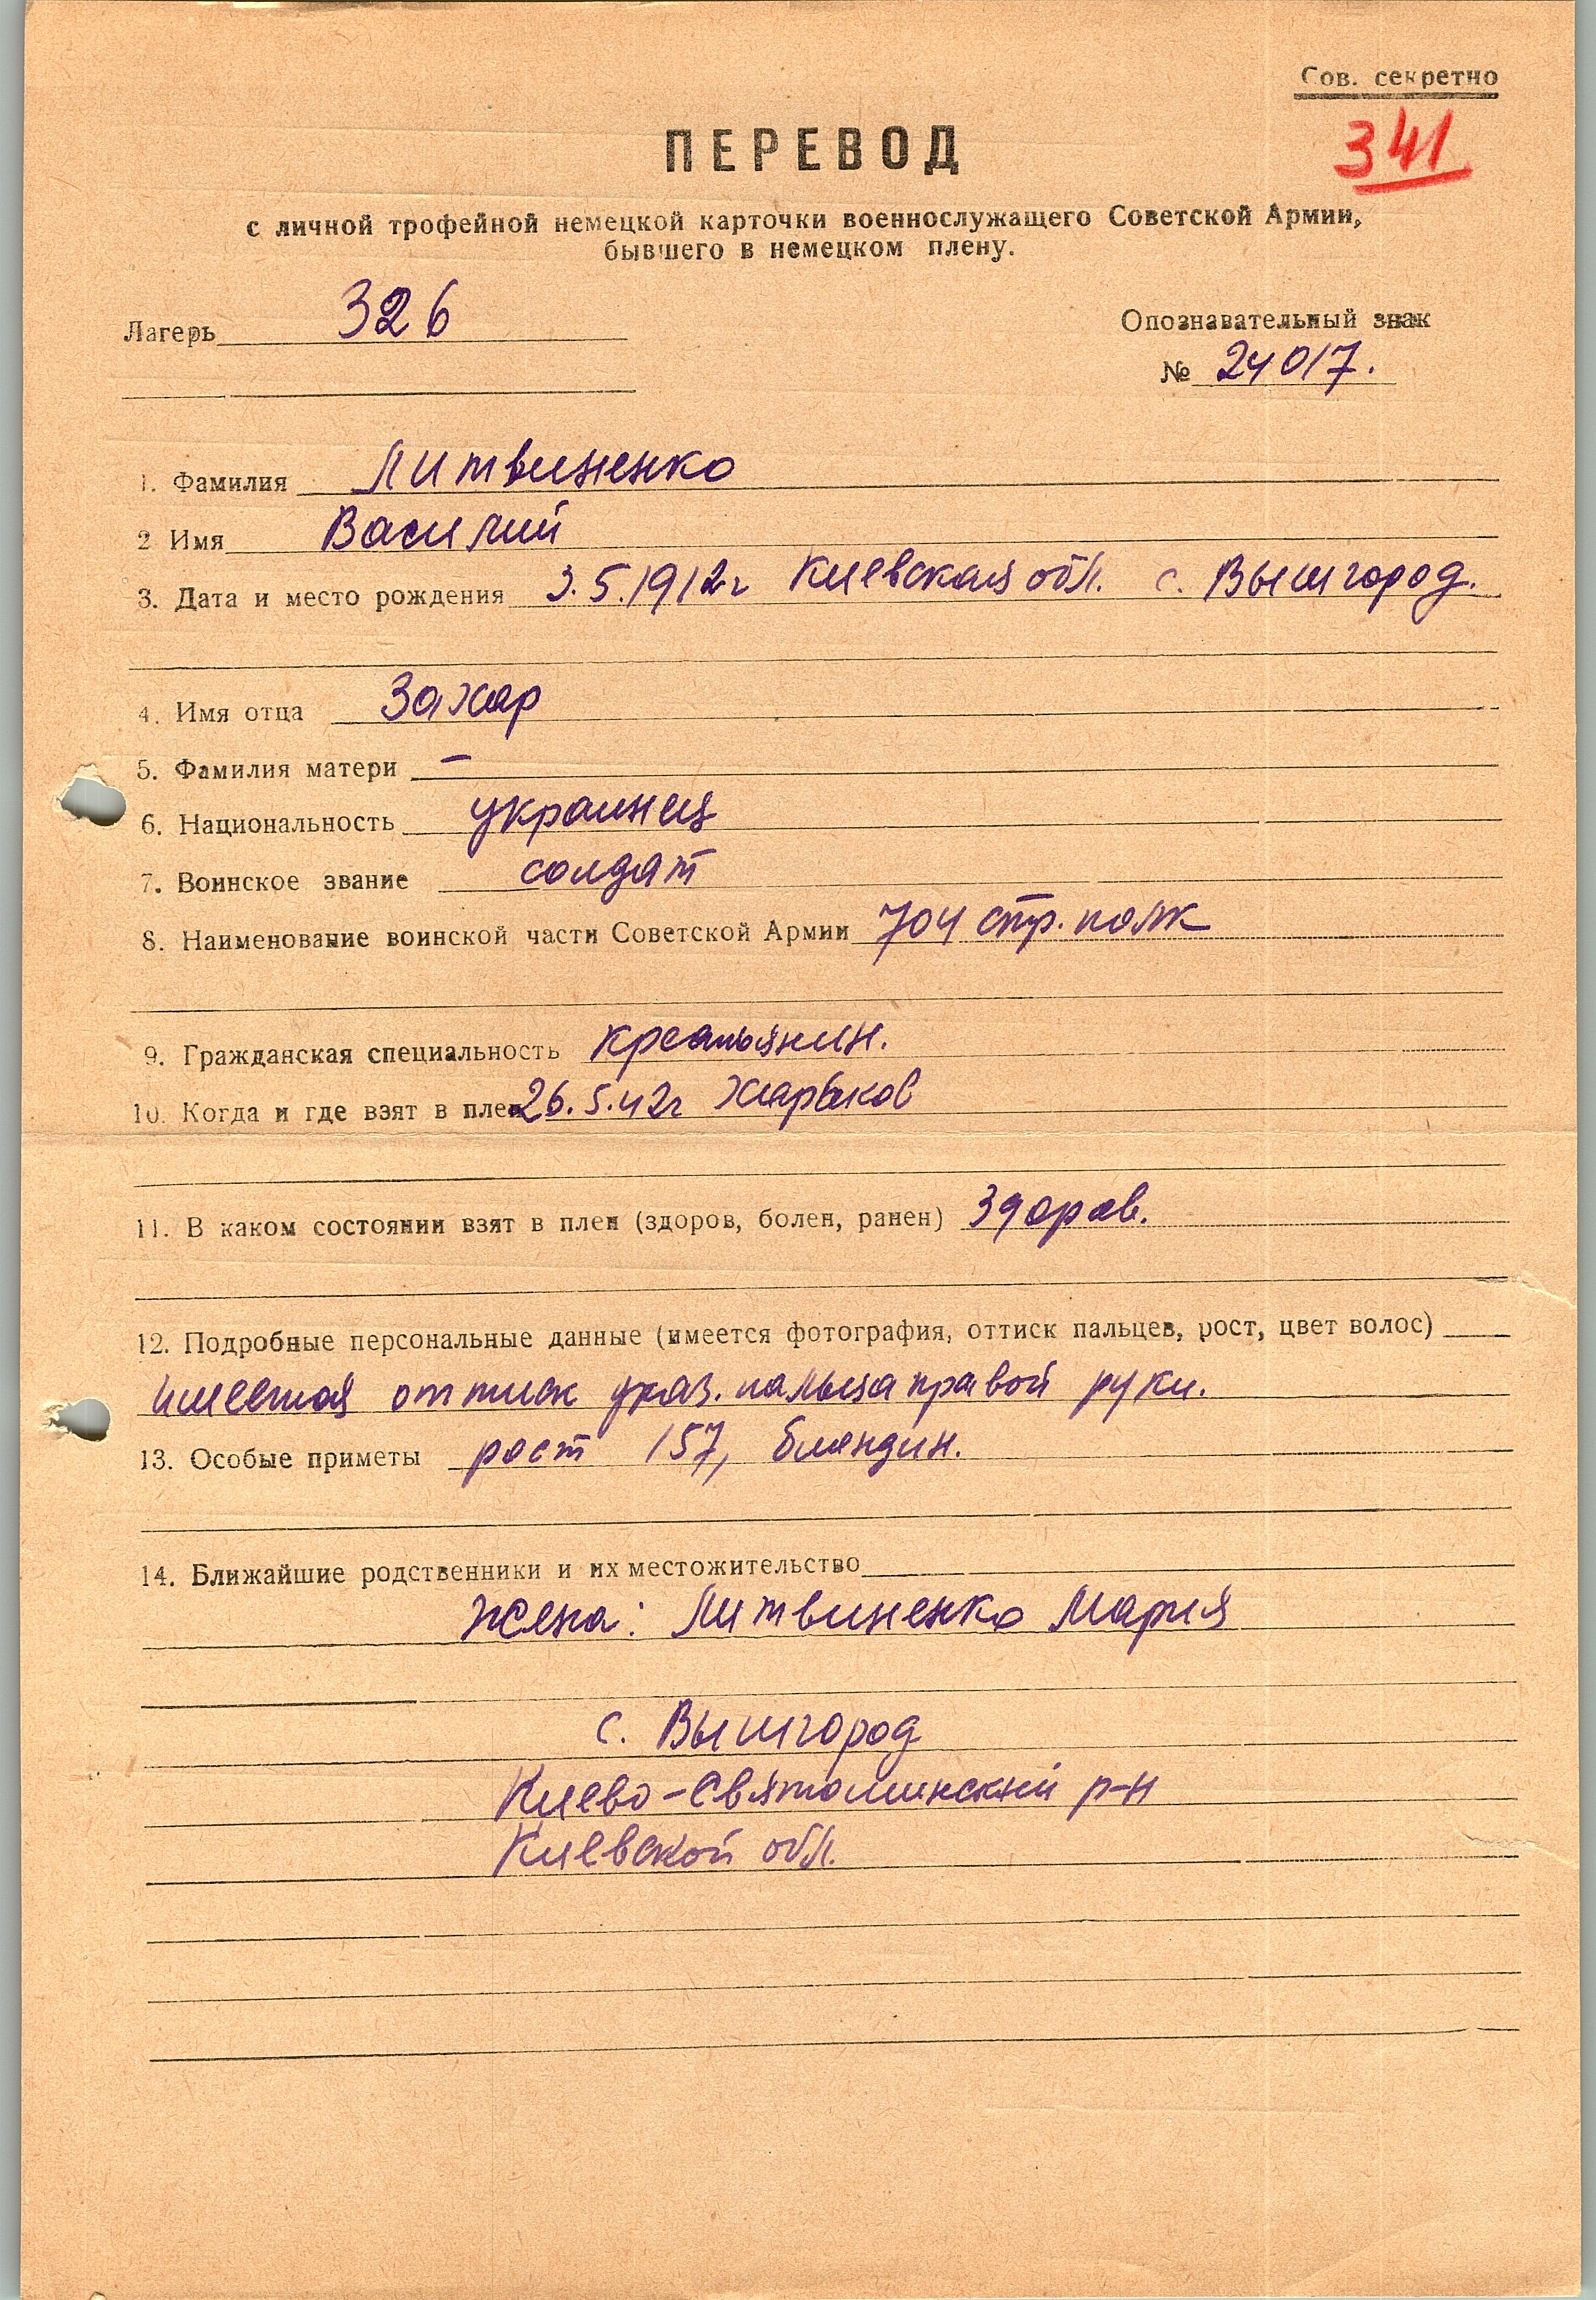 Сов. секретно
341
ПЕРЕВОД
с личной трофейной немецкой карточки военнослужащего Советской Армии,
бывшего в немецком плену.
Лагерь 326
Опознавательный знак
№ 24017.
1. Фамилия Литвиненко
2 Имя Василий
3. Дата и место рождения 3.5.1912г Киевская обл. с. Вышгород.
4. Имя отца Захар
5. Фамилия матери –
6. Национальность украинец
7. Воинское звание солдат
8. Наименование воинской части Советской Армии 704 стр. полк
9. Гражданская специальность крестьянин.
10. Когда и где взят в плен 26.5.42г Харьков
11. В каком состоянии взят в плен (здоров, болен, ранен) здоров.
12. Подробные персональные данные (имеется фотография, оттиск пальцев, рост, цвет волос)
имеется оттиск указ. пальца правой руки.
13. Особые приметы рост 157, блондин.
14. Ближайшие родственники и их местожительство
жена: Литвиненко Мария
с. Вышгород
Киево-Святошинский р-н
Киевской обл.